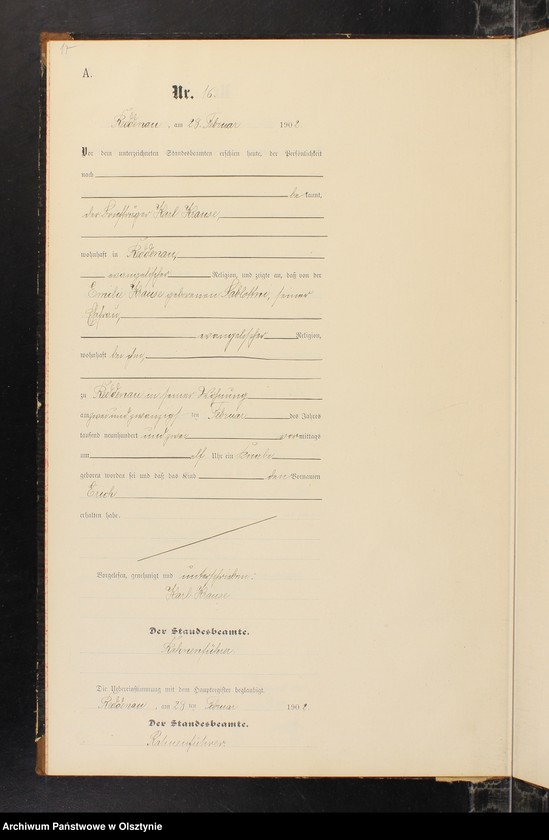 A.
Nr. 16.
Röddenau, am 28. Februar 1902.
Vor dem unterzeichneten Standesbeamten erschien heute, der Persönlichkeit
nach
be kannt,
der Karl Krause,
wohnhaft in Röddenau,
evangelischer Religion, und zeigte an, daß von der
Emilie Krause geborenen seiner
Ehefrau,
evangelischer Religion,
wohnhaft bei ihm,
zu Röddenau in seiner Wohnung
am zwanzigsten Februar des Jahres
tausend neunhundert und zwei vor mittags
um elf Uhr ein Knabe
geboren worden sei und daß das Kind den Vornamen
Erich
erhalten habe.
Vorgelesen, genehmigt und unterschrieben.
Karl Krause
Der Standesbeamte.
Die Uebereinstimmung mit dem Hauptregister beglaubigt
Röddenau, am 28. ten Februar 1902.
Der Standesbeamte.
Archiwum Państwowe w Olsztynie